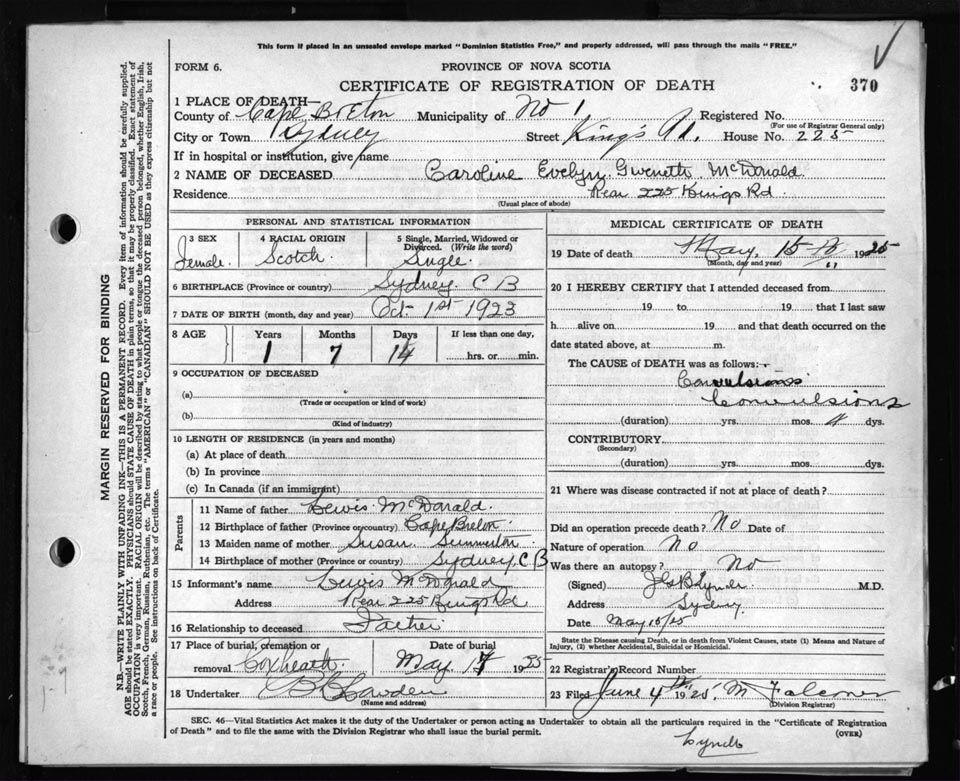 This form if placed in an unsealed envelope marked "Dominion Statistics Free," and properly addressed, will pass through the mails "FREE."
FORM 6.
PROVINCE OF NOVA SCOTIA
CERTIFICATE OF REGISTRATION OF DEATH
370
1 PLACE OF DEATH—
County of Cape Breton Municipality of No 1 Registered No.
(For use of Registrar General only)
City or Town Sydney Street King's Rd. House No. 225
If in hospital or institution, give name
2 NAME OF DECEASED Caroline Evelyn Gwenett McDonald
Residence Rear 225 Kings Rd
(Usual place of abode)
PERSONAL AND STATISTICAL INFORMATION
3 SEX 4 RACIAL ORIGIN 5 Single, Married, Widowed or Divorced. (Write the word)
Female. Scotch. Single.
6 BIRTHPLACE (Province or country) Sydney. C B
7 DATE OF BIRTH (month, day and year) Oct 1st 1923
8 AGE Years Months Days If less than one day,
1 7 14 hrs. or min.
9 OCCUPATION OF DECEASED
(a)
(Trade or occupation or kind of work)
(b)
(Kind of industry)
10 LENGTH OF RESIDENCE (in years and months)
(a) At place of death
(b) In province
(c) In Canada (if an immigrant)
Parents
11 Name of father Lewis McDonald.
12 Birthplace of father (Province or country) Cape Breton.
13 Maiden name of mother Susan
14 Birthplace of mother (Province or country) Sydney. C B
15 Informant's name Lewis McDonald
Address Rear 225 Kings Rd
16 Relationship to deceased Father
17 Place of burial, cremation or removal Coxheath. Date of burial May 17 1925
18 Undertaker Lowden
(Name and address)
MEDICAL CERTIFICATE OF DEATH
19 Date of death May, 15 1925
(Month, day and year)
20 I HEREBY CERTIFY that I attended deceased from
19 to 19 that I last saw
h alive on 19 and that death occurred on the
date stated above, at m.
The CAUSE of DEATH was as follows:
Convulsions
Convulsions
(duration) yrs. mos. 4 dys.
CONTRIBUTORY
(Secondary)
(duration) yrs. mos. dys.
21 Where was disease contracted if not at place of death?
Did an operation precede death? No Date of
Nature of operation No
Was there an autopsy? No
(Signed) Lynch M.D.
Address Sydney
Date May 15/25
State the Disease causing Death, or in death from Violent Causes, state (1) Means and Nature of Injury, (2) whether Accidental, Suicidal or Homicidal.
22 Registrar's Record Number
23 Filed June 4th 1925, M Falconer
(Division Registrar)
SEC. 46—Vital Statistics Act makes it the duty of the Undertaker or person acting as Undertaker to obtain all the particulars required in the "Certificate of Registration
of Death" and to file the same with the Division Registrar who shall issue the burial permit. (OVER)
Lynch
MARGIN RESERVED FOR BINDING
N.B.—WRITE PLAINLY WITH UNFADING INK—THIS IS A PERMANENT RECORD. Every item of information should be carefully supplied.
AGE should be stated EXACTLY. PHYSICIANS should STATE CAUSE OF DEATH in plain terms, so that it may be properly classified. Exact statement of
OCCUPATION is very important. RACIAL ORIGIN will be described by stating to what people or tongue the deceased person belonged, whether English, Irish,
Scotch, French, German, Russian, Ruthenian, etc. The terms "AMERICAN" or "CANADIAN" SHOULD NOT BE USED as they express citizenship but not
a race or people. See instructions on back of Certificate.